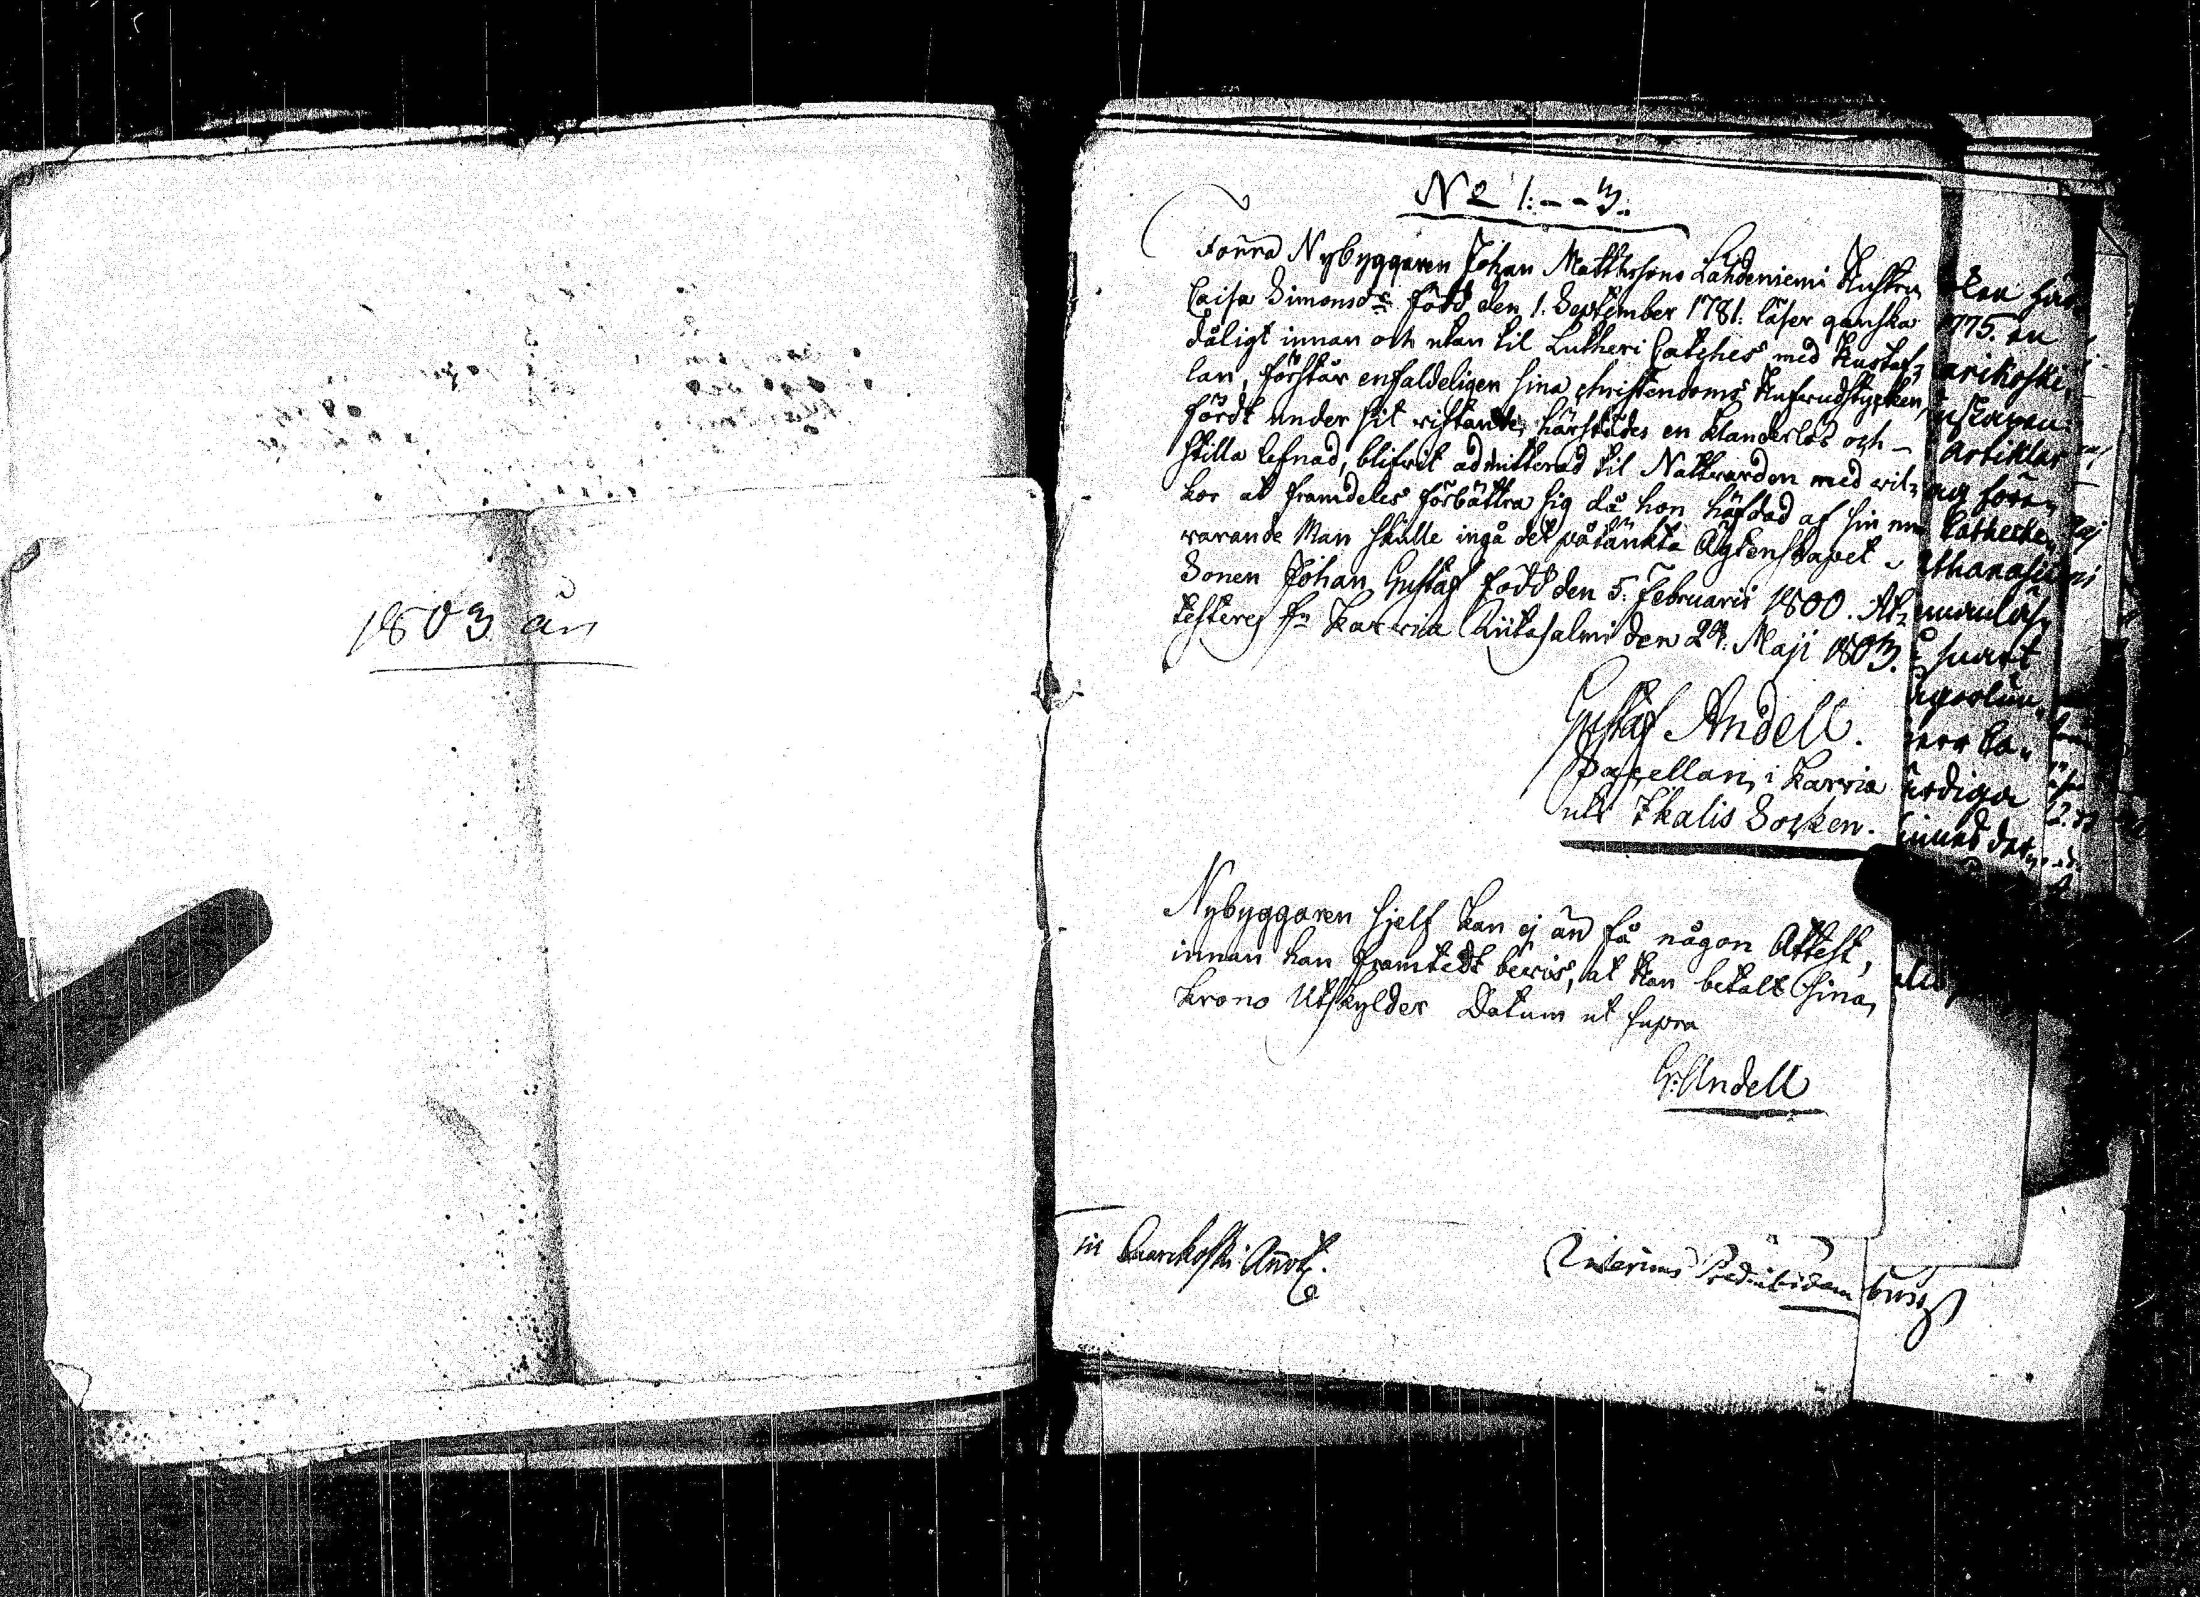 1803 års
No 1:--3.
Förra Nybyggaren Johan Matthssons Lahdeniemi Hustru
Caisa Simonsdr född den 1. September 1781. läser ganska
dåligt innan och utan til Lutheri Catches med Hustaf-
lan, förstår enfaldeligen sina christendoms hufwudstycken,
fördt under sit wistante härstädes en klanderlös och -
stilla lefnad, blifwit admitterad til Nattwarden med wil-
kor at framdeles förbättra sig då hon häfdad af sin nu
warande Man skulle ingå det påtänkta Ägtenskapet.
Sonen Johan Gustaf född den 5. Februarii 1800. At-
testeres fr Karvia Kiikasalmi den 24. Maji 1803.
Gustaf Andell.
Capellan i Karvia
uti Ikalis Socken.
Nybyggaren sjelf kan ej än få någon Attest,
innan han framtedt bewis, at han betalt sina
Krono Utskylder Datum ut supra
G: Andell
den här
1775. en
arikoski,
Artiklar
Catheche-
Athanasii
swart
werdiga